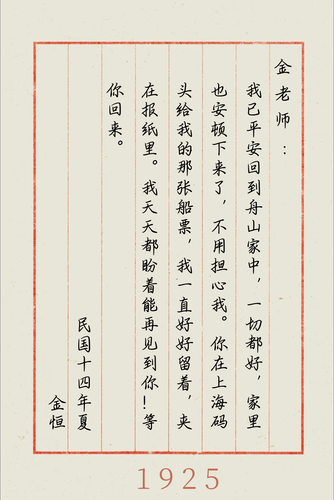 金老师：
我已平安回到舟山家中，一切都好，家里
也安顿下来了，不用担心我。你在上海码
头给我的那张船票，我一直好好留着，夹
在报纸里。我天天都盼着能再见到你！等
你回来。
民国十四年夏
金恒
1925